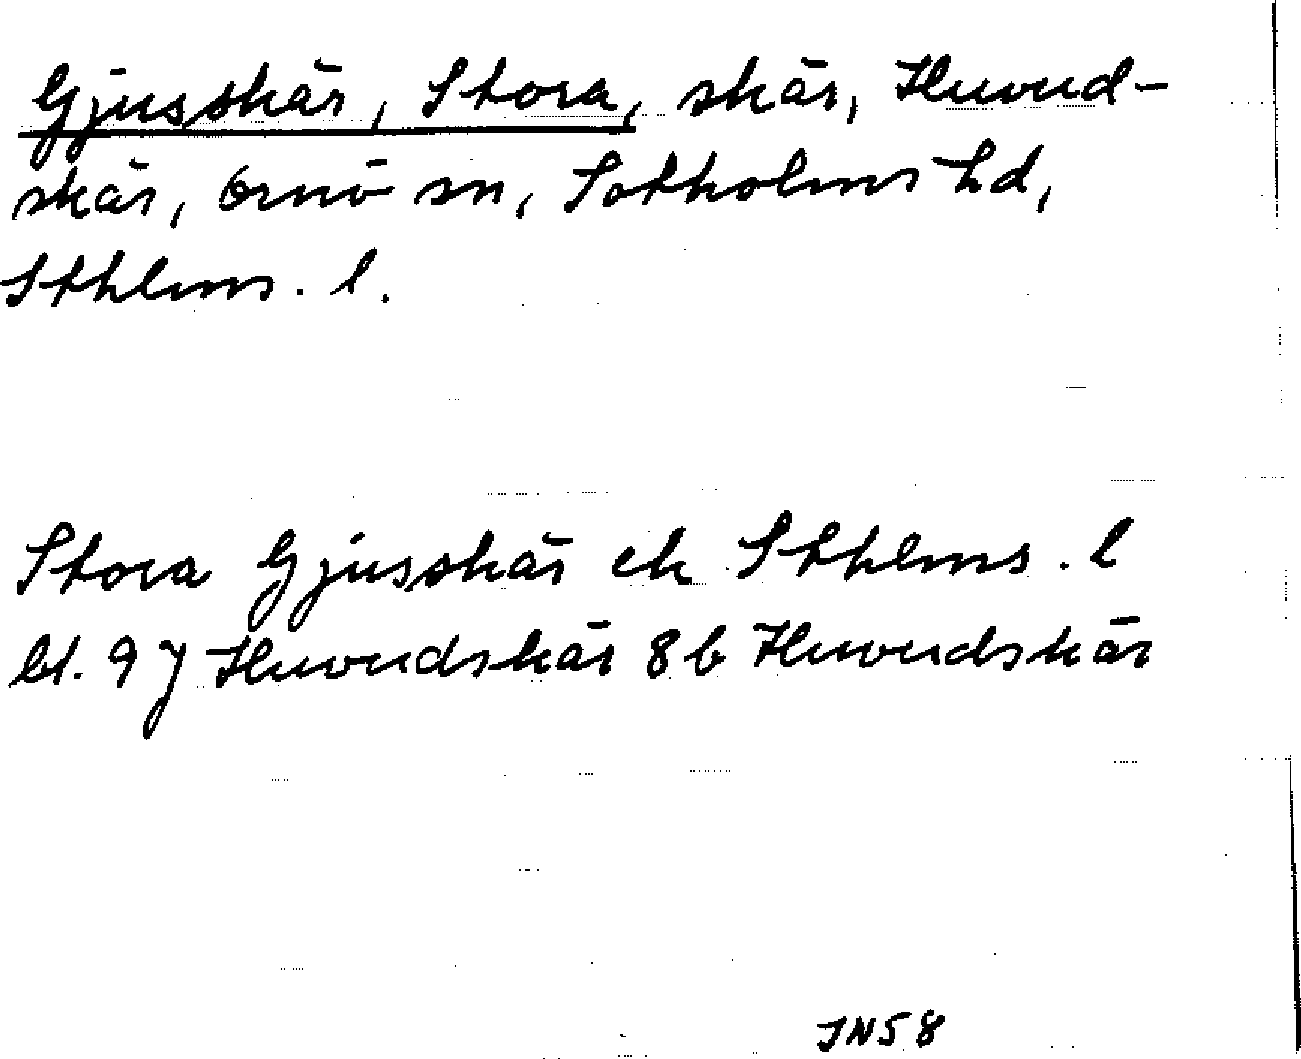 Gjusskär, Stora, skär, Huvud-
skär, Ornö sn, Sotholms hd,
Sthlms. l.
Stora Gjusskär ek Sthlms. l
bl. 9 j Huvudskär 8 b Huvudskär
JN58